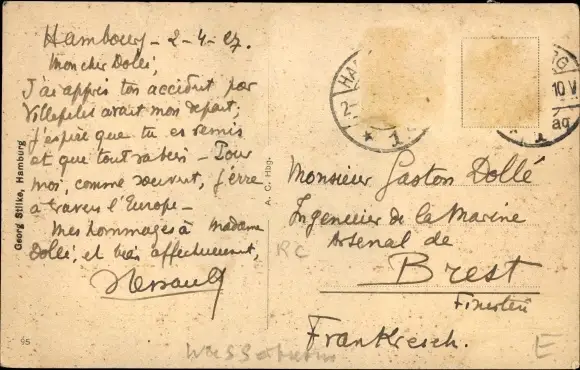 Hambourg - 2-4-27.
Mon cher Dollé,
J'ai appris ton accident par
Villepelet avant mon départ;
j'espère que tu es remis
et que tout va bien - Pour
moi, comme souvent, j'erre
à travers l'Europe -
Mes hommages à Madame
Dollé, et bien affectueusement,
Georg Stilke, Hamburg
A. C. Hbg.
95
HA
G
2
10 V
* 1
* 1
Monsieur Gaston Dollé
Ingénieur de la Marine
Arsenal de
Brest
Finistère
Frankreich.
RC
E